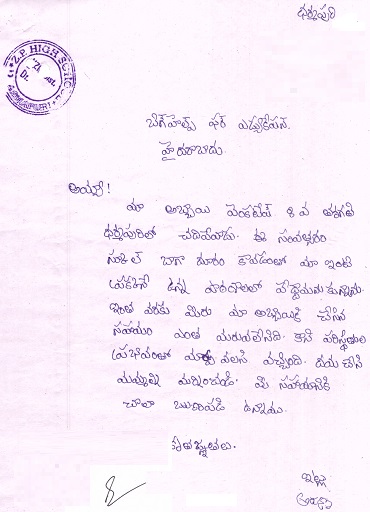 ధర్మపురి
Z.P. HIGH SCHOOL
బిగ్ హెల్ప్ ఫర్ ఎడ్యుకేషన్.
హైదరాబాదు.
అయ్యా!
మా అబ్బాయి వెంకటేష్ 8 వ తరగతి
ధర్మపురిలో చదివేవాడు. ఈ సంవత్సరం
స్కూల్ బాగా దూరం కావడంలో మా ఇంటి
ప్రక్కనే ఉన్న పాఠశాలలో
ఇంత వరకు మీరు మా అబ్బాయికి చేసిన
సహాయం ఎంత మరువలేనిది. కానీ పరిస్థితుల
ప్రభావంలో వలసి వచ్చింది. దయచేసి
మమ్మల్ని మన్నించండి. మీ సహాయానికి
చాలా ఋణపడి ఉన్నాము.
కృతజ్ఞతలు.
ఇట్లు